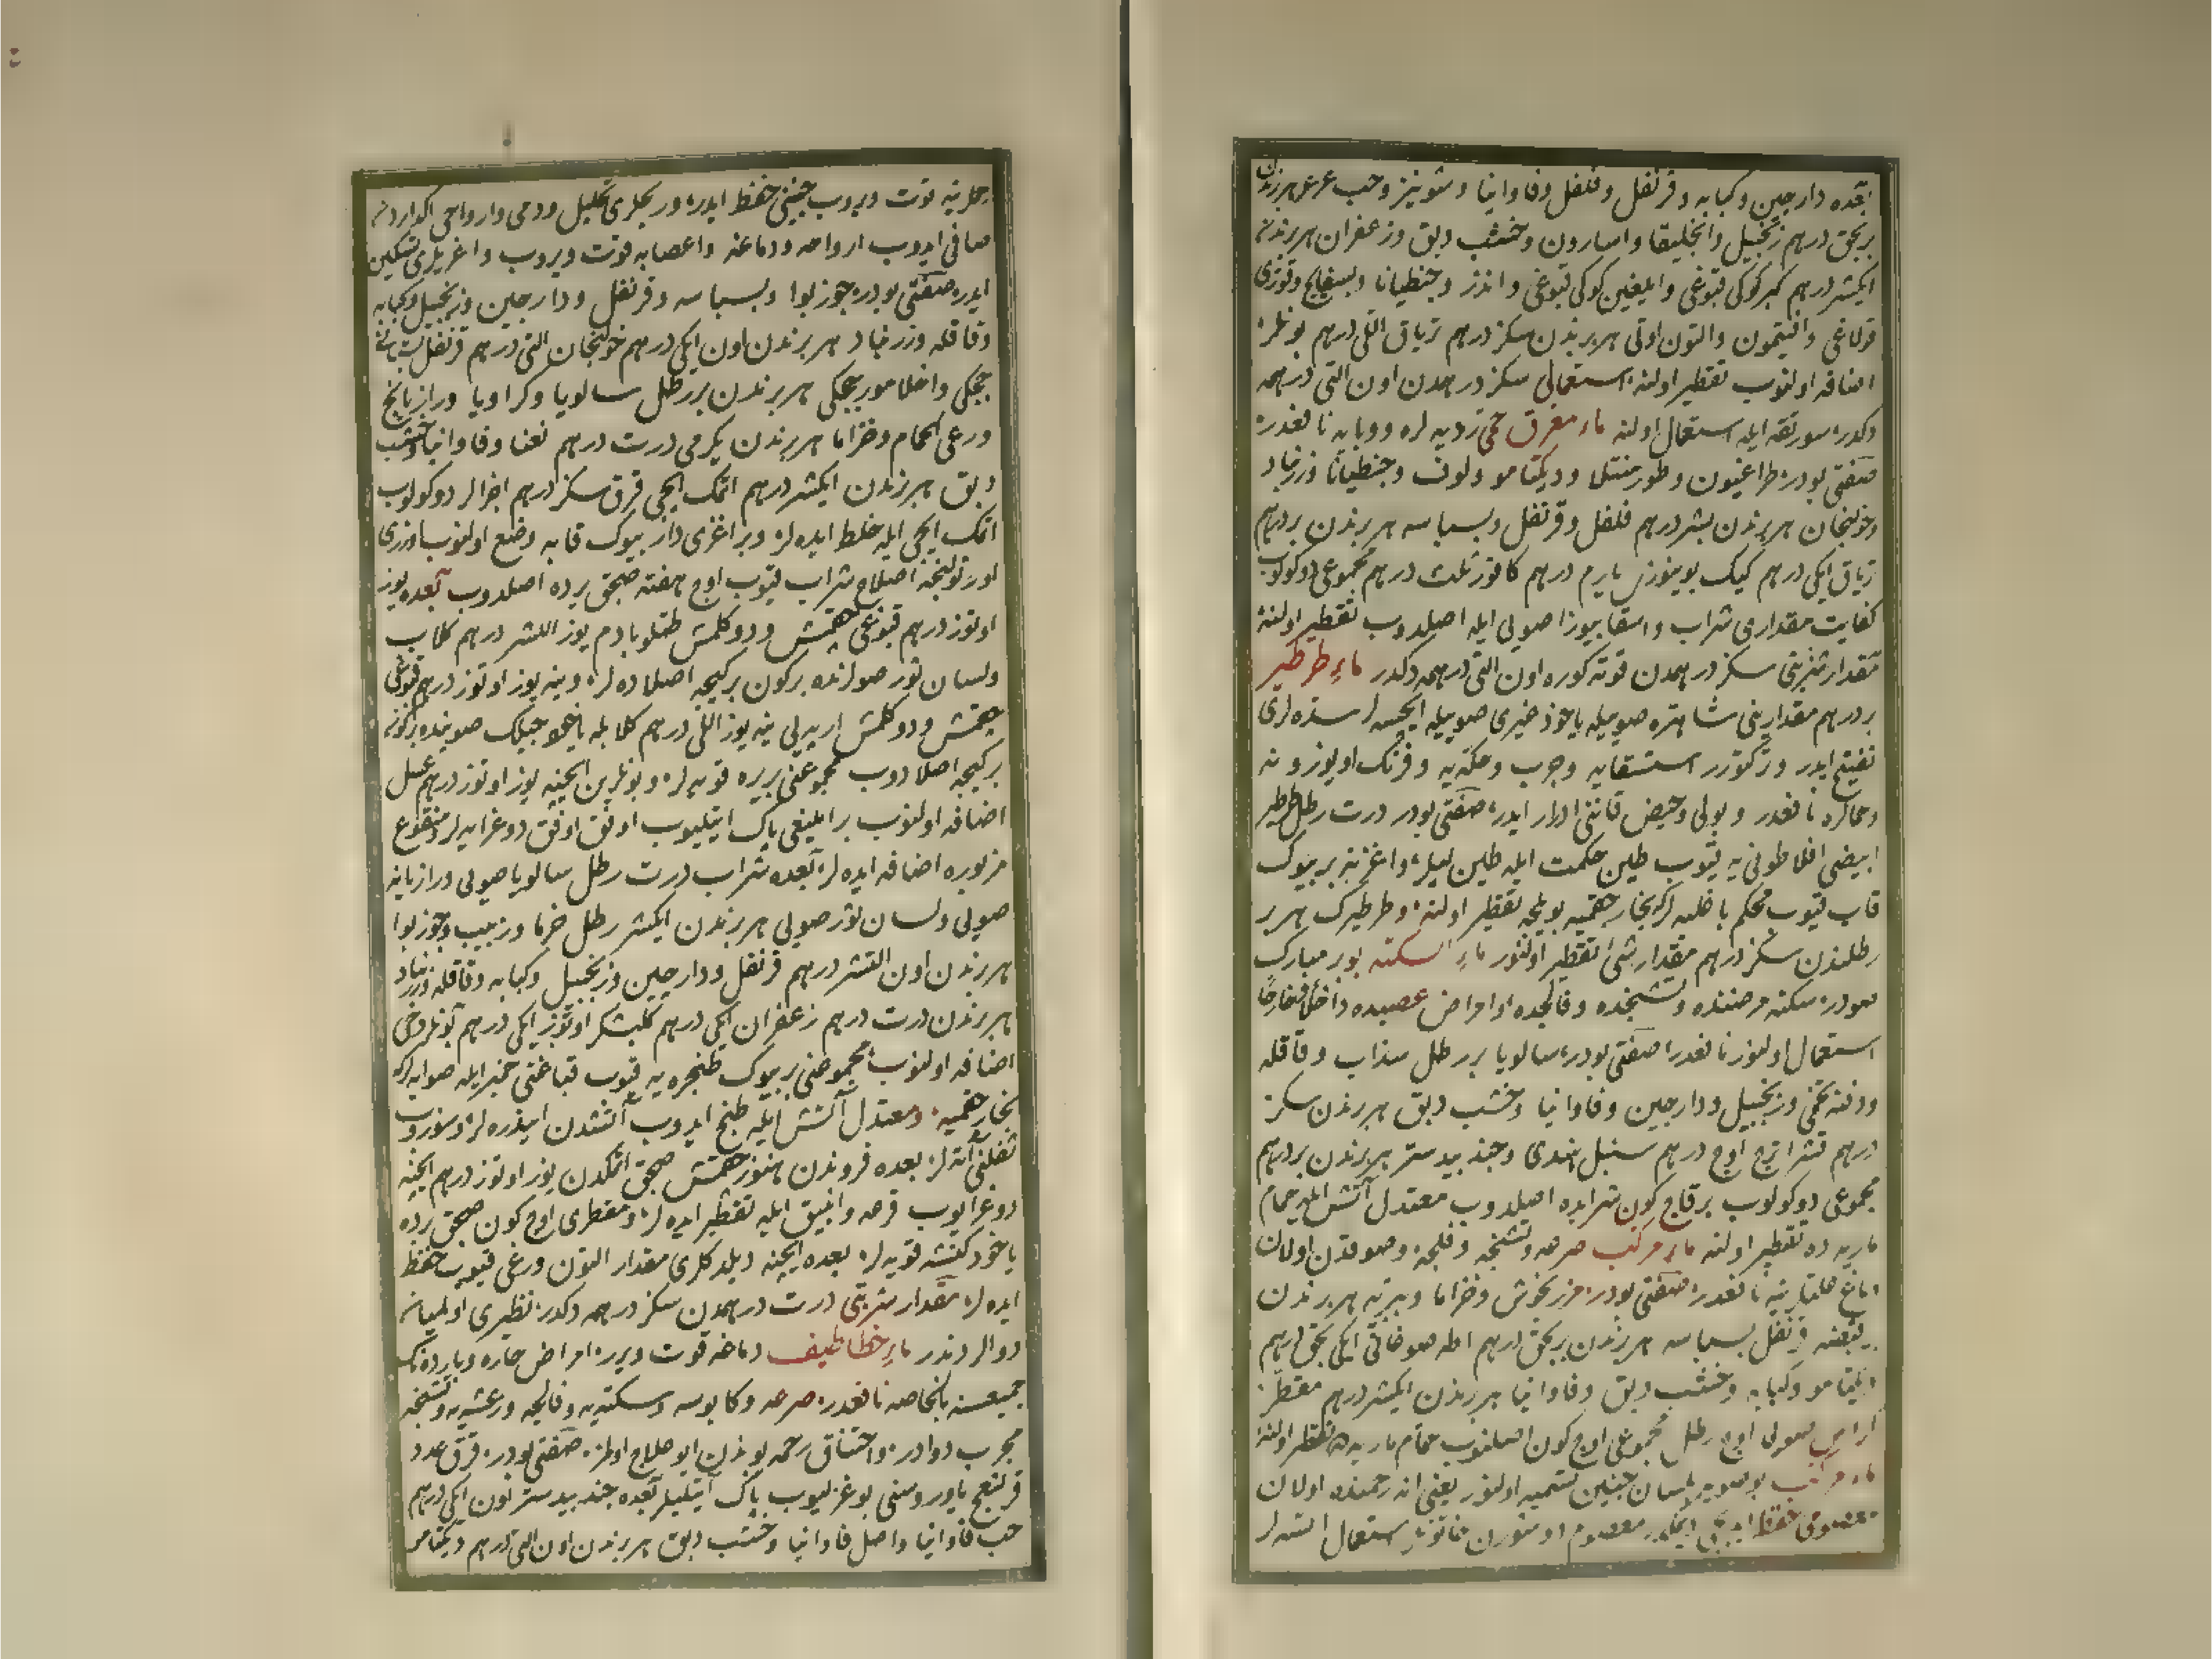 بعده دارچين وكبابه وقرنفل وفلفل وفاوانيا وشونيز وحب عرعر هربرندن
بربچق درهم زنجبيل وانجليقا واسارون وخشب دبق وزعفران هربرندن
ايكيشر درهم كبر كوكى قبوغى وايلغين كوكى قبوغى واندز وجنطيانا وبسفايج وقوزى
قولاغى وافتيمون والتون اوتى هربرندن سكز درهم ترياق اللى درهم بونلر
اضافه اولنوب تقطير اولنه استعمالى سكز درهمدن اون التى درهمه
دكدر سورنقه ايله استعمال اولنه ماء معرق حمى رديه لره ووبايه نافعدر
صنعتى بودر طراغيون وطورمنتلا وديكتامو ولوف وجنطيانا وزرنباد
وخولنجان هربرندن بشر درهم فلفل وقرنفل وبسباسه هربرندن بر درهم
ترياق ايكى درهم كيك بوينوزى يارم درهم كافور ثلث درهم مجموعى دوكولوب
كفايت مقدارى شراب واسقابيوزا صويى ايله اصلدوب تقطير اولنه
مقدار شربتى سكز درهمدن قوته كوره اون التى درهمه دكدر ماء طرطير
بر درهم مقدارينى شاهتره صوييله ياخود خيرى صوييله ايچسه لر سده لرى
تفتيح ايدر وتركتورر استسقايه وجرب وحكه يه وفرنك اويوزونه
ومحالره نافعدر وبولى وحيض قاننى ادرار ايدر صنعتى بودر درت رطل طرطير
ابيضى افلاطونى يه قيوب طين حكمت ايله طين ليلر واغزينه بر بيوك
قاب قيوب محكم باغليه لركه بخار چقميه بويله تقطير اولنه وطرطيرك هر بر
رطلندن سكز درهم مقدارى شى تقطير اولنور ماء السكته بو بر مبارك
صودر سكته مرضنده وتشنجده وفالجده وامراض عصبيده داخلا وخارجا
استعمال اولنور نافعدر صنعتى بودر سالويا بر رطل سذاب وقاقله
ودفنه تخمى وزنجبيل ودارچين وفاوانيا وخشب دبق هربرندن سكز
درهم قشر اترج اوچ درهم سنبل هندى وجند بيدستر هربرندن بر درهم
مجموعى دوكولوب برقاچ كون شرابده اصلدوب معتدل آتش ايله حمام
ماريه ده تقطير اولنه ماء مركب صرعه وتشنجه وفلجه وصوقدن اولان
دماغ علتلرينه نافعدر صنعتى بودر مرزنجوش وخزاما وبتريه هربرندن
بر قبضه قرنفل بسباسه هربرندن بربچق درهم اطه صوغانى ايكى بچق درهم
ديكتامو وكبابه وخشب دبق وفاوانيا هربرندن ايكيشر درهم مقطر
صويى اوچ رطل مجموعى اوچ كون اصلنوب حمام ماريه ده تقطير اولنه
ماء مركب بو صويه لسان جنين تسميه اولنور يعنى انه رحمنده اولان
معصومى حفظ ايدجى ديمكدر معصوم دوشورن خاتونلر استعمال اتسه لر
رحملرينه قوت ويروب جنينى حفظ ايدر وريحلرى تحليل ودمى وارواحى اكداردن
صافى ايدوب ارواحه ودماغه واعصابه قوت ويروب واغريلرى تسكين
ايدر صنعتى بودر جوزبوا وبسباسه وقرنفل ودارچين وزنجبيل وكبابه
وقاقله وزرنباد هربرندن اون ايكى درهم خولنجان التى درهم قرنفل
چچكى واخلامور چچكى هربرندن بر رطل سالويا وكراويا ورازيانج
ورعى الحمام وخزاما هربرندن يكرمى درت درهم نعنا وفاوانيا وخشب
دبق هربرندن ايكيشر درهم اتمك ايچى قرق سكز درهم اجزالر دوكولوب
اتمك ايچى ايله خلط ايده لر وبر اغزى دار بيوك قابه وضع اولنوب اوزرى
اورتولنجه اصلاح شراب قيوب اوچ هفته صيجق يرده اصلدوب بعده يوز
اوتوز درهم قبوغى چقمش ودوكلمش طتلو بادم يوز اللشر درهم كلاب
ولسان ثور صولرنده بر كون بر كيجه اصلاده لر وينه يوز اوتوز درهم قبوغى
چقمش ودوكلمش اربه يى ينه يوز اللى درهم كلابله ياخود چيلك صوينده بر كون
بر كيجه اصلادوب مجموعنى بر يره قويه لر وبونلرين ايچينه يوز اوتوز درهم عسل
اضافه اولنوب بر ايليغى پاك ايتليوب اوفق اوفق دوغرايه لر ومنقوع
مزبوره اضافه ايده لر بعده شراب درت رطل سالويا صويى ورازيانه
صويى ولسان ثور صويى هربرندن ايكيشر رطل خرما وزبيب وجوزبوا
هربرندن اون التشر درهم قرنفل ودارچين وزنجبيل وكبابه وقاقله وزرنباد
هربرندن درت درهم زعفران ايكى درهم كلبشكر اوتوز ايكى درهم بونلر دخى
اضافه اولنوب مجموعنى بر بيوك طنجره يه قيوب قپاغنى خمير ايله صوايه لركه
بخار چقميه ومعتدل آتش ايله طبخ ايدوب آتشدن ايندره لر وسوزوب
ثفلنى آته لر بعده فروندن هنوز چقمش صيجق اتمكدن يوز اوتوز درهم ايچينه
دوغرايوب قرعه وانبيق ايله تقطير ايده لر ومقطرى اوچ كون صيجق يرده
ياخود كنشه قويه لر بعده ايچينه ديلدكلرى مقدار التون ورقى قيوب حفظ
ايده لر مقدار شربتى درت درهمدن سكز درهمه دكدر نظيرى اولميان
دوالردندر ماء خطاطيف دماغه قوت ويرر امراض حاره وبارده نك
جميعسنه بالخاصه نافعدر صرعه وكابوسه وسكته يه وفالجه ورعشه يه وتشنجه
مجرب دوادر واختناق رحمه بوندن ايو علاج اولمز صنعتى بودر قرق عدد
قرلنغج ياوروسنى بوغزليوب پاك آيتليلر بعده جند بيدستر اون ايكى درهم
حب فاوانيا واصل فاوانيا وخشب دبق هربرندن اون التى درهم ديكتامو